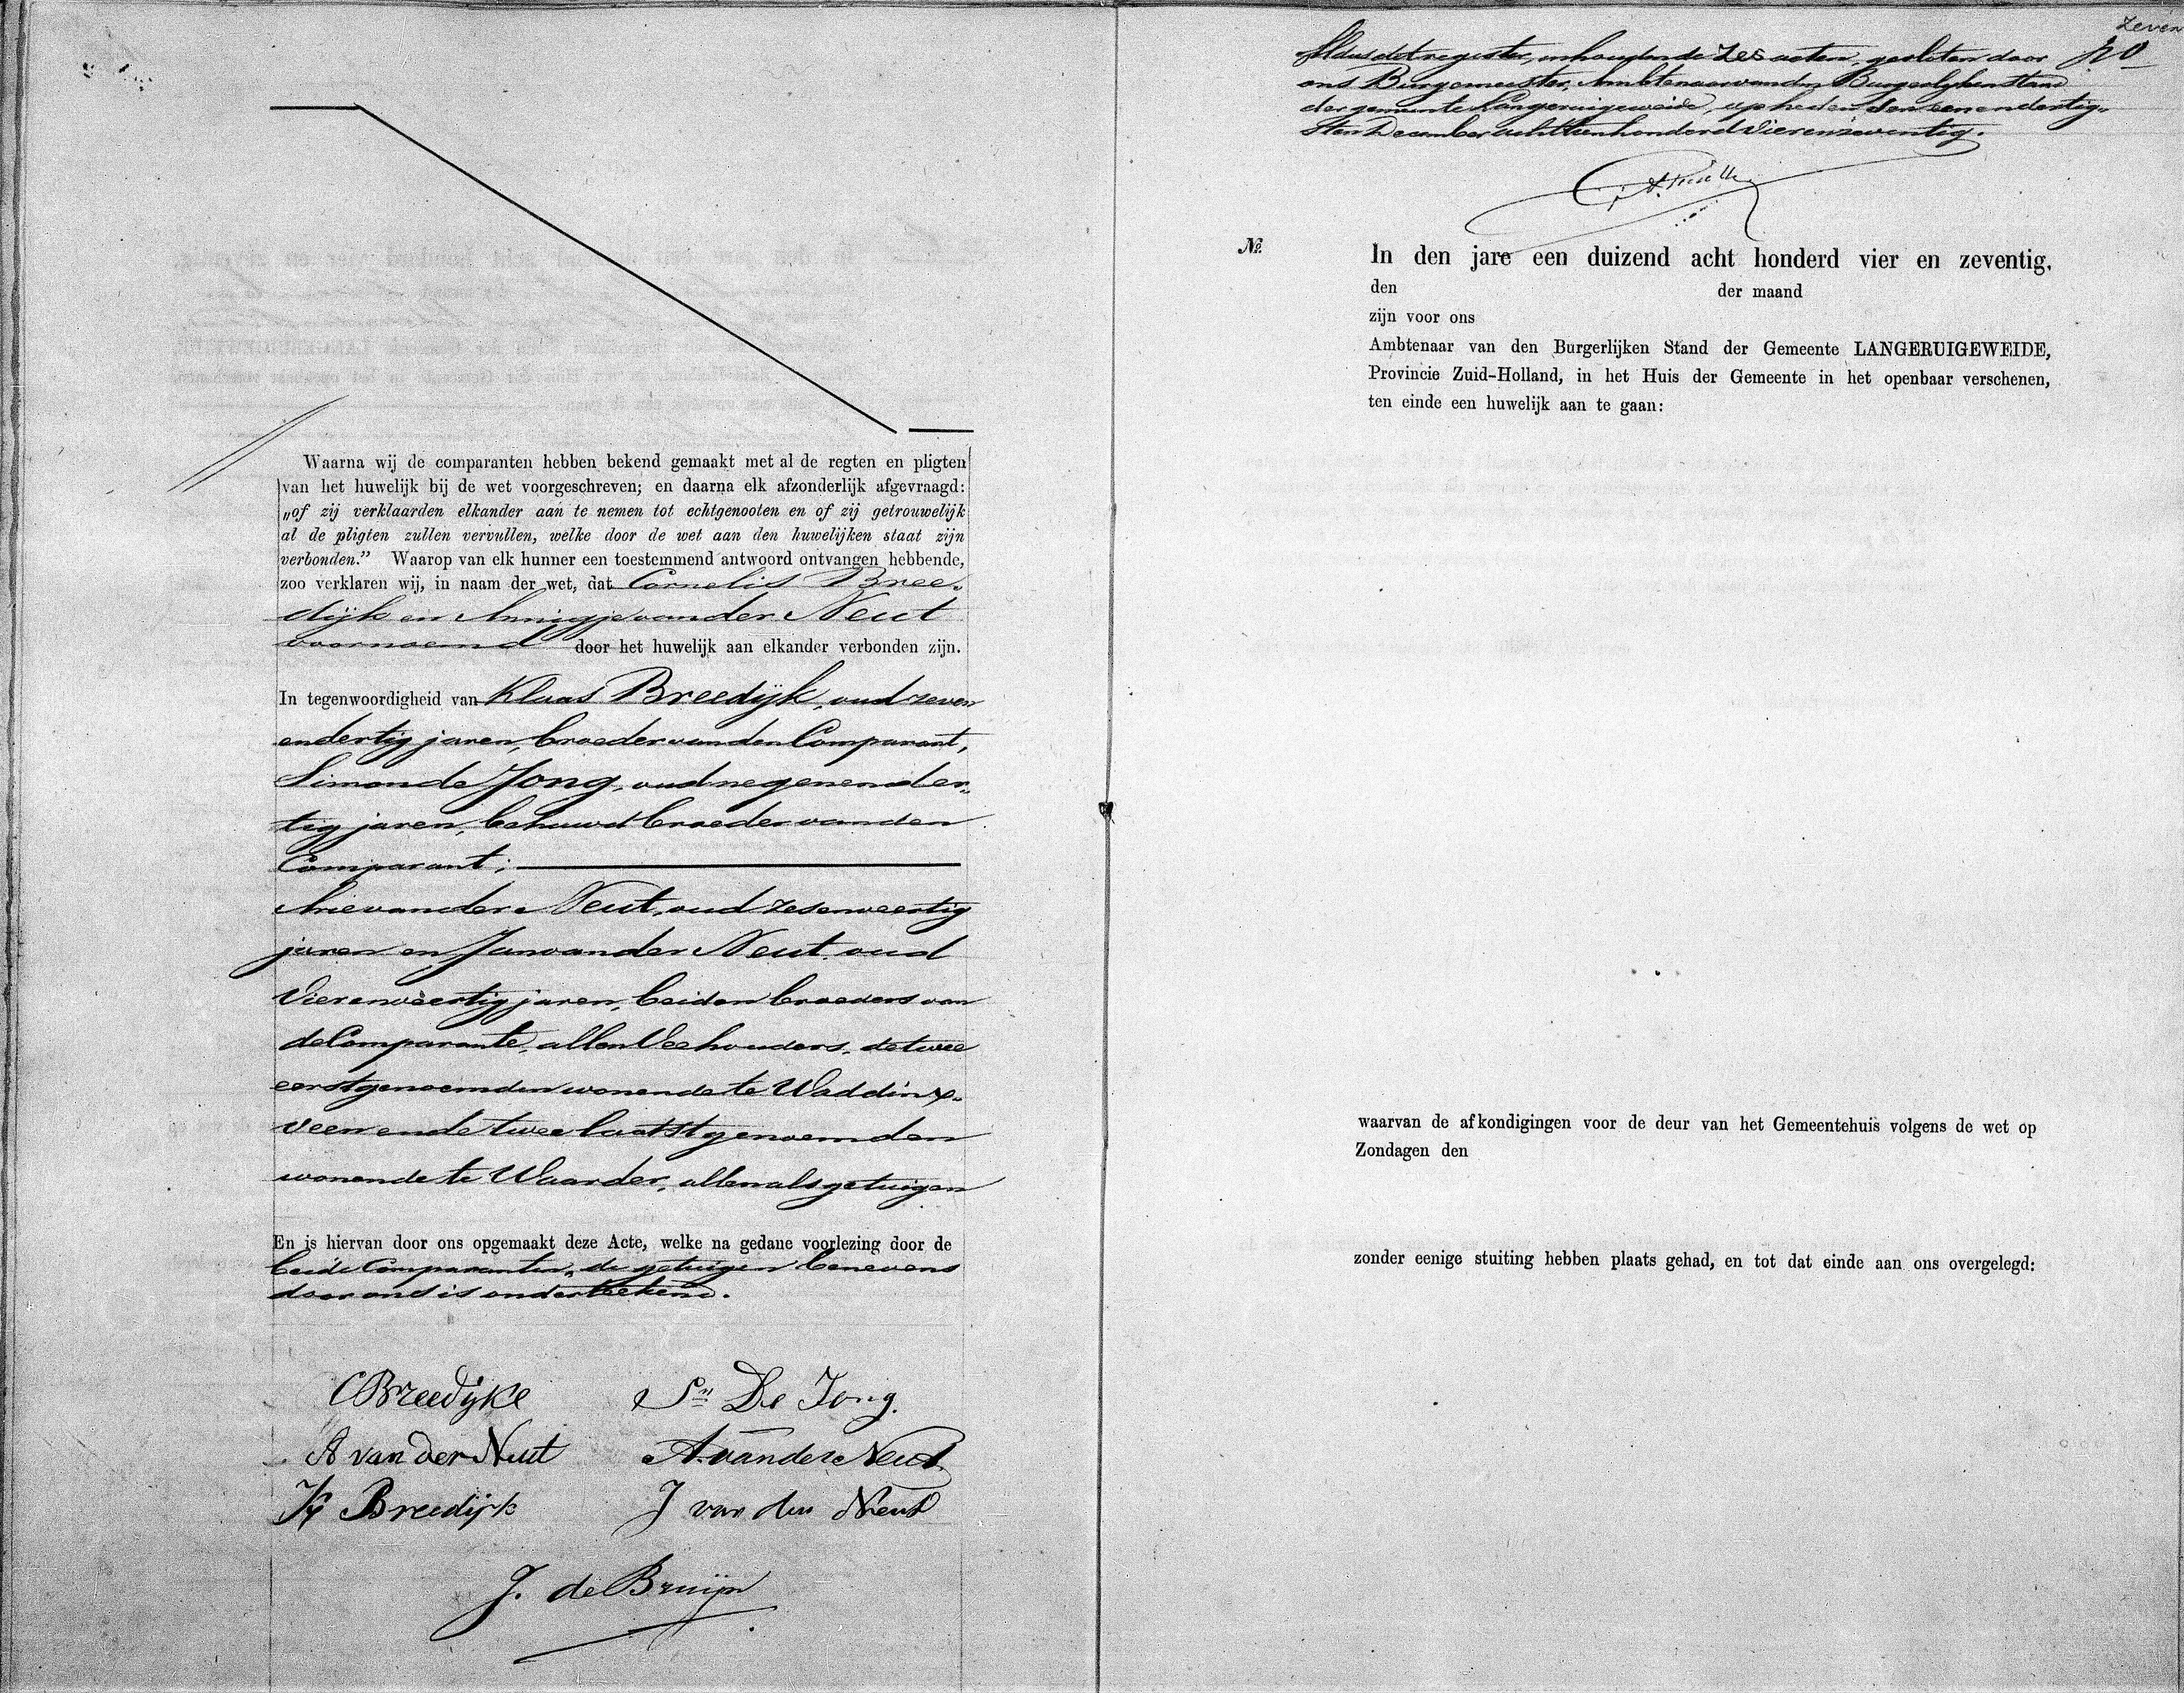 Waarna wij de comparanten hebben bekend gemaakt met al de regten en pligten
van het huwelijk bij de wet voorgeschreven; en daarna elk afzonderlijk afgevraagd:
„of zij verklaarden elkander aan te nemen tot echtgenooten en of zij getrouwelijk
al de pligten zullen vervullen, welke door de wet aan den huwelijken staat zijn
verbonden.” Waarop van elk hunner een toestemmend antwoord ontvangen hebbende,
zoo verklaren wij, in naam der wet, dat Cornelis Bree„
dijk en Annigje van der Neut
voornoemd door het huwelijk aan elkander verbonden zijn.
In tegenwoordigheid van Klaas Breedijk, oud zeven
endertig jaren, broeder van den Comparant,
Simon de Jong, oud negenender„
tig jaren, behuwd broeder van den
Comparant;
Arie van der Neut, oud zesenveertig
jaren en Jan van der Neut, oud
vierenveertig jaren, beiden broeders van
de Comparante, allen Veehouders, de twee
eerstgenoemden wonende te Waddinx„
veen en de twee laatstgenoemden
wonende te Waarder, allen als getuigen
En is hiervan door ons opgemaakt deze Acte, welke na gedane voorlezing door de
beide Comparanten, de getuigen benevens
door ons is onderteekend.
CBreedijke Sn De Jong.
A van der Neut A. van der Neut
K Breedijk J van der Neut
J. de Bruijn
zeven
Aldus dit register, inhoudende zes acten, gesloten door
ons Burgemeester, Ambtenaar van den Burgerlijken Stand
der gemeente Langeruigeweide, op heden den eenendertig„
sten December achttienhonderd vierenzeventig.
No. In den jare een duizend acht honderd vier en zeventig,
den der maand
zijn voor ons
Ambtenaar van den Burgerlijken Stand der Gemeente LANGERUIGEWEIDE,
Provincie Zuid-Holland, in het Huis der Gemeente in het openbaar verschenen,
ten einde een huwelijk aan te gaan:
waarvan de afkondigingen voor de deur van het Gemeentehuis volgens de wet op
Zondagen den
zonder eenige stuiting hebben plaats gehad, en tot dat einde aan ons overgelegd: